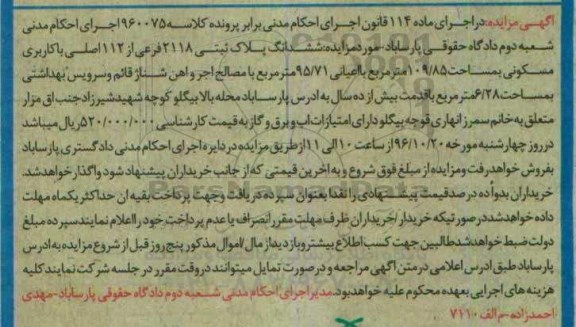 آگهی مزایده در اجرای ماده ۱۱۴ قانون اجرای احکام مدنی برابر پرونده کلاسه ۹۶۰۰۷۵ اجرای احکام مدنی
شعبه دوم دادگاه حقوقی پارساباد - مورد مزایده: ششدانگ پلاک ثبتی ۲۱۱۸ فرعی از ۱۱۲ اصلی با کاربری
مسکونی بمساحت ۱۰۹/۸۵ متر مربع با اعیانی ۹۵/۷۱ متر مربع با مصالح اجر و اهن شناژ قائم و سرویس بهداشتی
بمساحت ۶/۲۸ متر مربع باقدمت بیش از ده سال به ادرس پارساباد محله بالا بیگلو کوچه شهید شیرزاد جنب اق مزار
متعلق به خانم سمرز انهاری قوجه بیگلو دارای امتیازات اب و برق و گاز به قیمت کارشناسی ۵۲۰/۰۰۰/۰۰۰ ریال میباشد
در روز چهارشنبه مورخه ۹۶/۱۰/۲۰ از ساعت ۱۰ الی ۱۱ از طریق مزایده در دایره اجرای احکام مدنی دادگستری پارساباد
بفروش خواهد رفت و مزایده از مبلغ فوق شروع و به اخرین قیمتی که از جانب خریداران پیشنهاد شود واگذار خواهد شد.
خریداران بدوا ده درصد قیمت پیشنهادی را نقدا بعنوان سپرده دریافت و جهت پرداخت بقیه ان حداکثر یکماه مهلت
داده خواهد شد در صورتیکه خریدار/خریداران ظرف مهلت مقرر انصراف یا عدم پرداخت خود را اعلام نمایند سپرده مبلغ
دولت ضبط خواهد شد طالبین جهت کسب اطلاع بیشتر و بازدید از مال/اموال مذکور پنج روز قبل از شروع مزایده به ادرس
پارساباد طبق ادرس اعلامی در متن اگهی مراجعه و در صورت تمایل میتوانند در وقت مقرر در جلسه شرکت نمایند کلیه
هزینه های اجرایی بعهده محکوم علیه خواهد بود. مدیر اجرای احکام مدنی شعبه دوم دادگاه حقوقی پارساباد - مهدی
احمدزاده - م الف ۷۱۱۰